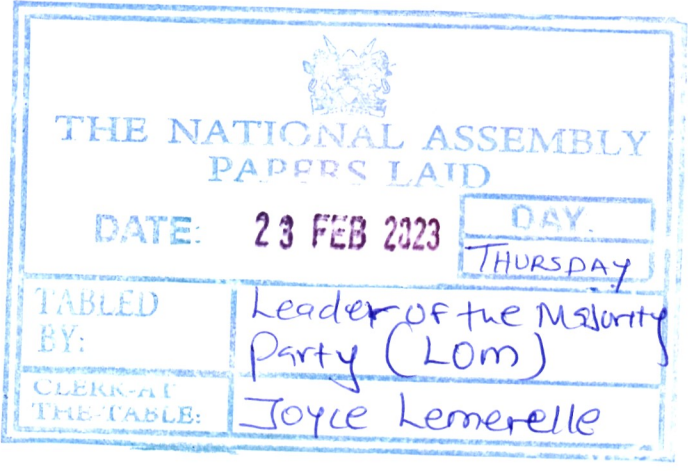 THE NATIONAL ASSEMBLY
PAPERS LAID
DATE: 23 FEB 2023
DAY.
THURSDAY
TABLED
BY:
Leader of the Majority
Party (LOM)
CLERK-AT
THE-TABLE:
Joyce Lemerelle